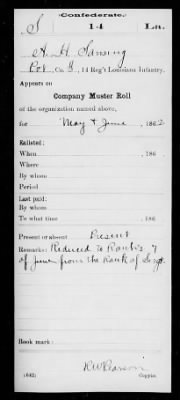 Confederate.
S 14 La.
A. H. Sansing
Pvt, Co. G, 14 Reg't Louisiana Infantry.
Appears on
Company Muster Roll
of the organization named above,
for May & June, 1862.
Enlisted:
When , 186 .
Where
By whom
Period
Last paid:
By whom
To what time , 186 .
Present or absent Present
Remarks: Reduced to Ranks 7
of June from the Rank of Sergt.
Book mark:
(642)
Copyist.